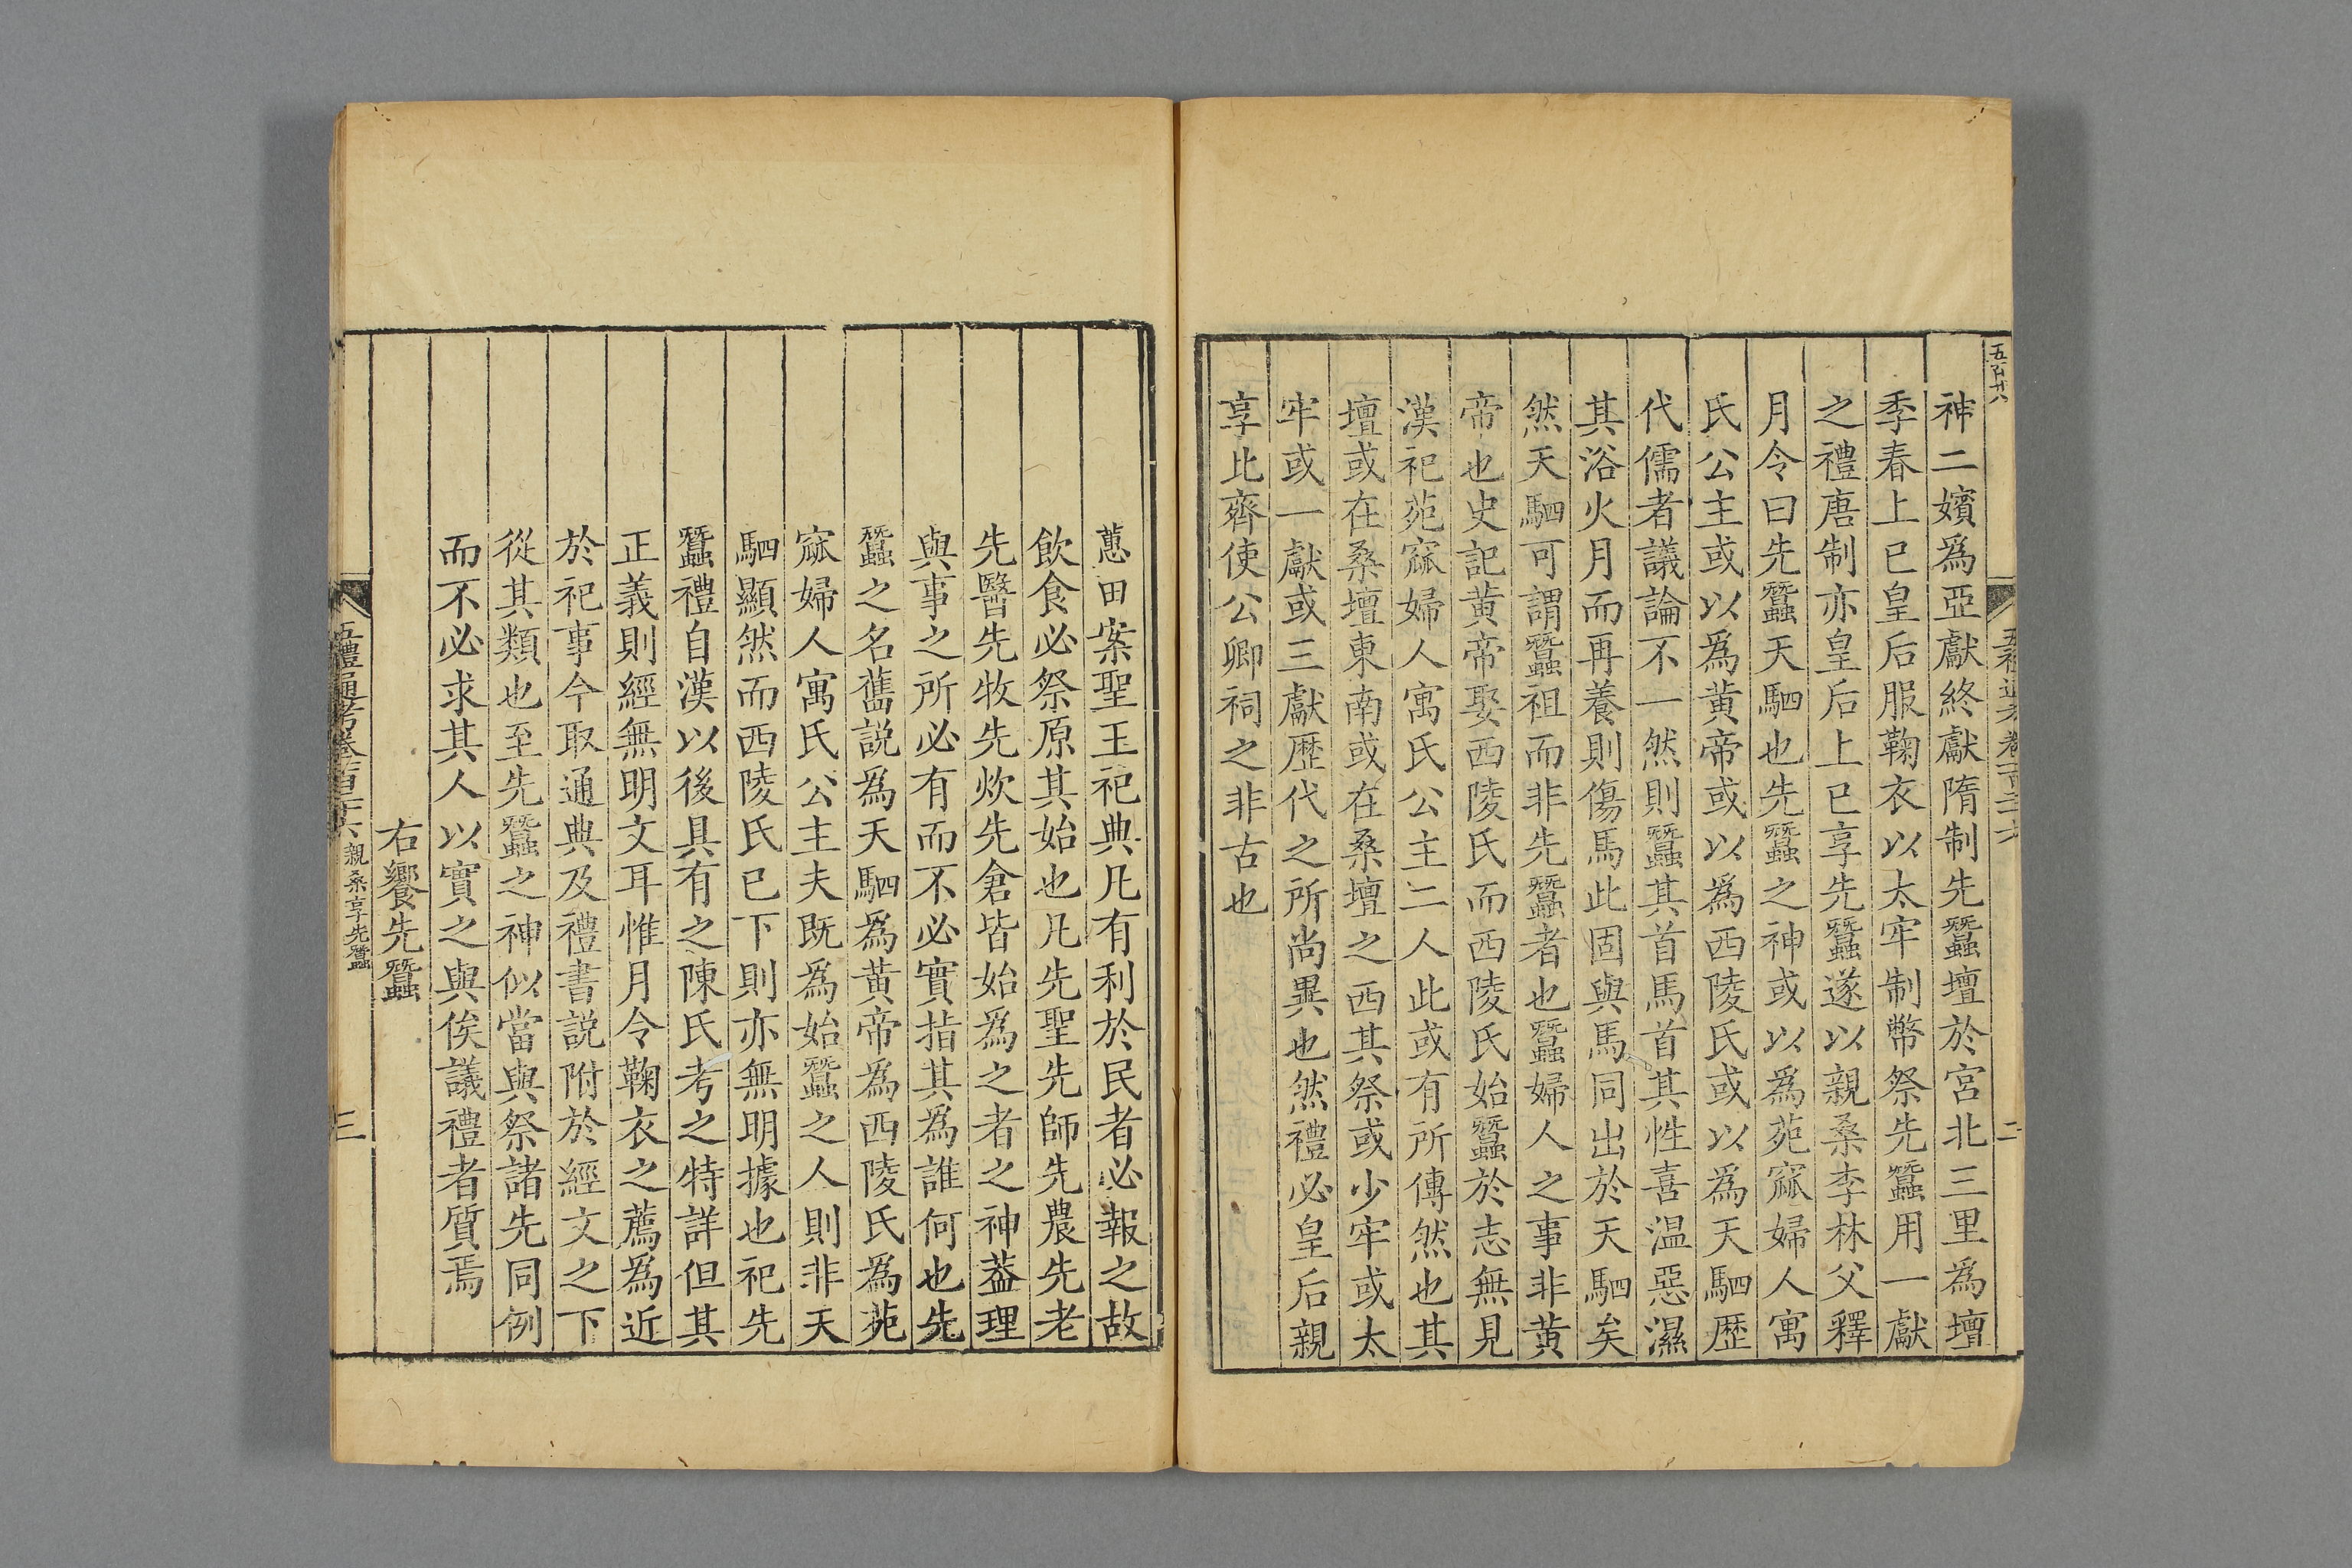 神二嬪爲亞獻終獻隋制先蠶壇於宮北三里爲壇
季春上巳皇后服鞠衣以太牢制幣祭先蠶用一獻
之禮唐制亦皇后上巳享先蠶遂以親桑李林父釋
月令曰先蠶天駟也先蠶之神或以爲菀窳婦人寓
氏公主或以爲黃帝或以爲西陵氏或以爲天駟歴
代儒者議論不一然則蠶其首馬首其性喜温惡濕
其浴火月而再養則傷馬此固與馬同出於天駟矣
然天駟可謂蠶祖而非先蠶者也蠶婦人之事非黃
帝也史記黃帝娶西陵氏而西陵氏始蠶於志無見
漢祀菀窳婦人寓氏公主二人此或有所傳然也其
壇或在桑壇東南或在桑壇之西其祭或少牢或太
牢或一獻或三獻歴代之所尚異也然禮必皇后親
享比齊使公卿祠之非古也
蕙田案聖王祀典凡有利於民者必報之故
飲食必祭原其始也凡先聖先師先農先老
先醫先牧先炊先倉皆始爲之者之神葢理
與事之所必有而不必實指其爲誰何也先
蠶之名舊説爲天駟爲黃帝爲西陵氏爲菀
窳婦人寓氏公主夫既爲始蠶之人則非天
駟顯然而西陵氏已下則亦無明據也祀先
蠶禮自漢以後具有之陳氏考之特詳但其
正義則經無明文耳惟月令鞠衣之薦爲近
於祀事今取通典及禮書説附於經文之下
從其類也至先蠶之神似當與祭諸先同例
而不必求其人以實之與俟議禮者質焉
右饗先蠶
五禮通考卷一百二十六 親桑享先蠶
三